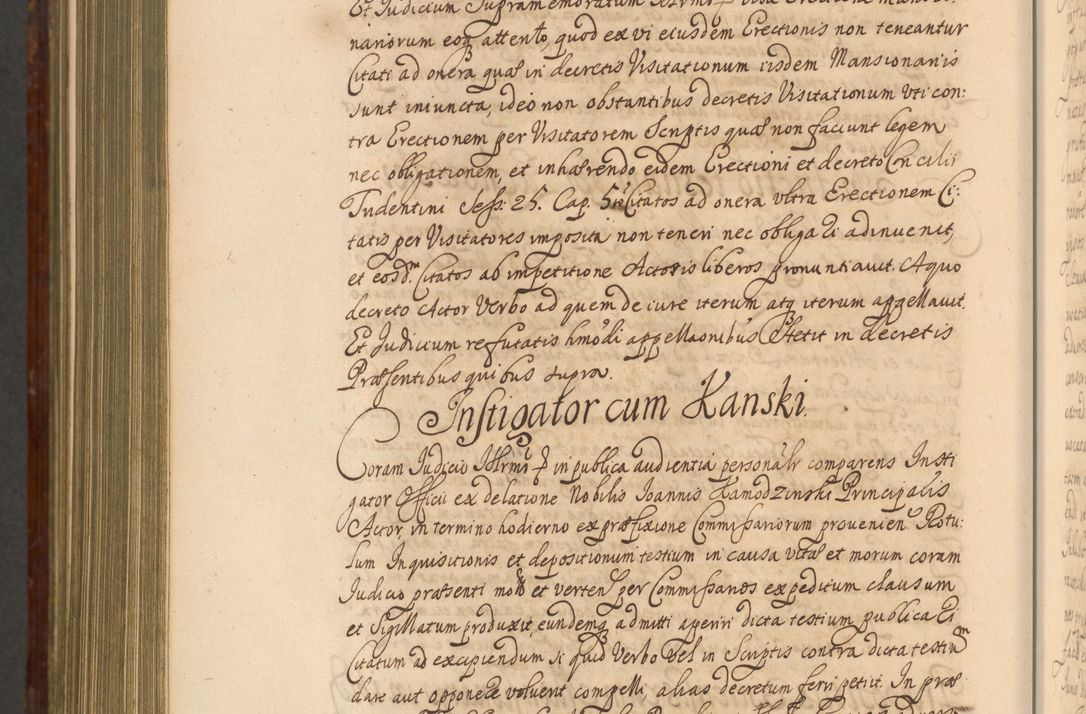 Et Judicium Supramemoratum
nariorum eoq attento, quod ex vi eiusdem Erectionis non teneantur
Citati ad onera quæ in decretis Visitationum iisdem Mansionariis
sunt iniuncta, ideo non obstantibus decretis Visitationum uti con:
tra Erectionem per Visitatorem Scriptis quæ non faciunt legem
nec obligationem, et inhærendo eidem Erectioni et decreto Concilii
Tridentini Sess: 25. Cap. 5to Citatos ad onera ultra Erectionem Ci:
tatis per Visitatores imposita non teneri nec obligari adinvenit,
et eosdm Citatos ab impetitione Actoris liberos pronuntiavit. A quo
decreto Actor Verbo ad quem de iure iterum atq iterum appellavit.
Et Judicium refutatis hmodi appellaonibus stetit in decretis
Præsentibus quibus supra.
Instigator cum Kanski.
Coram Judicio Illrmi in publica audientia personalr comparens Insti
gator Officii ex delatione Nobilis Joannis Kamodzinski Principalis
Actor in termino hodierno ex præfixione Commissariorum provenien Rotu:
lum Inquisitionis et depositionum testium in causa vitæ et morum coram
Judicio præsenti mota et verten per Commissarios expeditum clausum
et Sigillatum produxit, eundemq admitti aperiri dicta testium publicari
Citatum ad excipiendum si quid Verbo vel in Scriptis contra dicta testium
dare aut opponere voluerit compelli, alias decretum ferri petiit. In præ